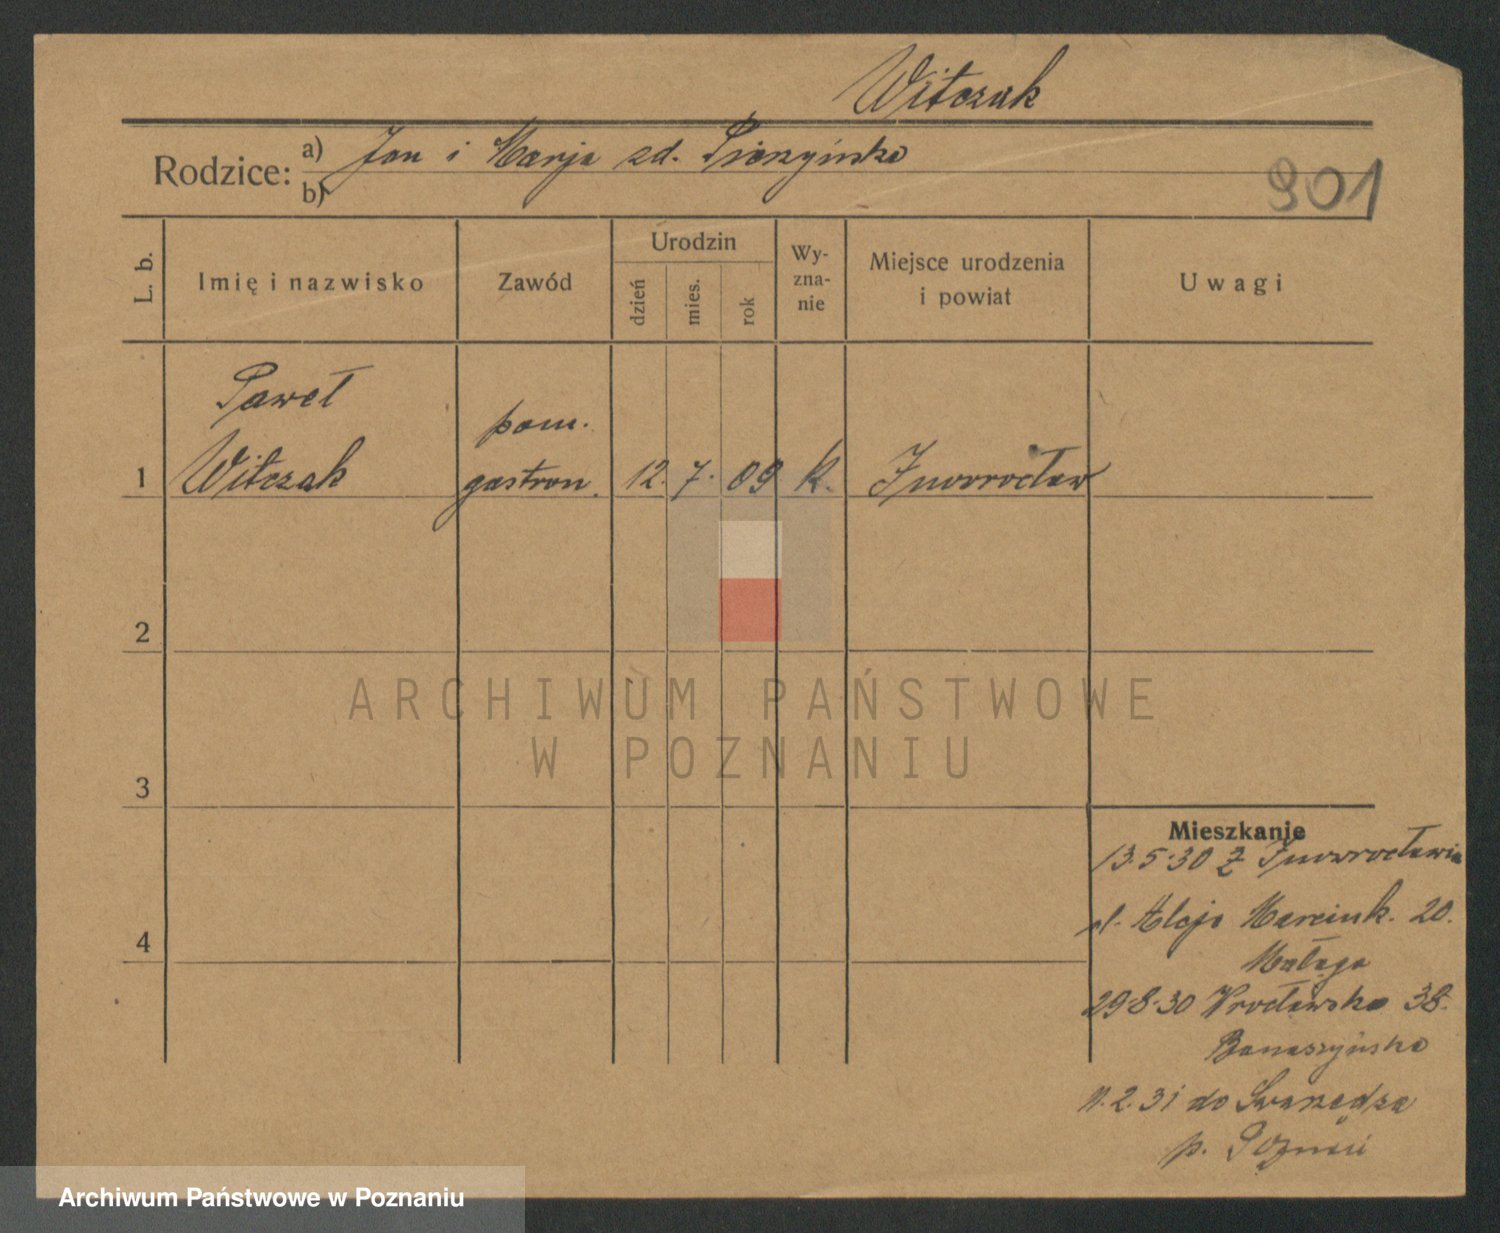 Witczak
Rodzice: a) Jan i Marja zd.
b)
901
L. b. Imię i nazwisko Zawód Urodzin dzień mies. rok Wyznanie Miejsce urodzenia i powiat Uwagi
Paweł pom.
1 Witczak gastron. 12. 7. 09 k. Inowrocław
2
ARCHIWUM PAŃSTWOWE
W POZNANIU
3
Mieszkanie
13.5.30 z Inowrocławia
4 Aleje Marcink. 20.
Małaga
29.8.30 Wrocławska 38.
Banaszyńska
11.2.31 do Swarzędza
p. Poznań
Archiwum Państwowe w Poznaniu